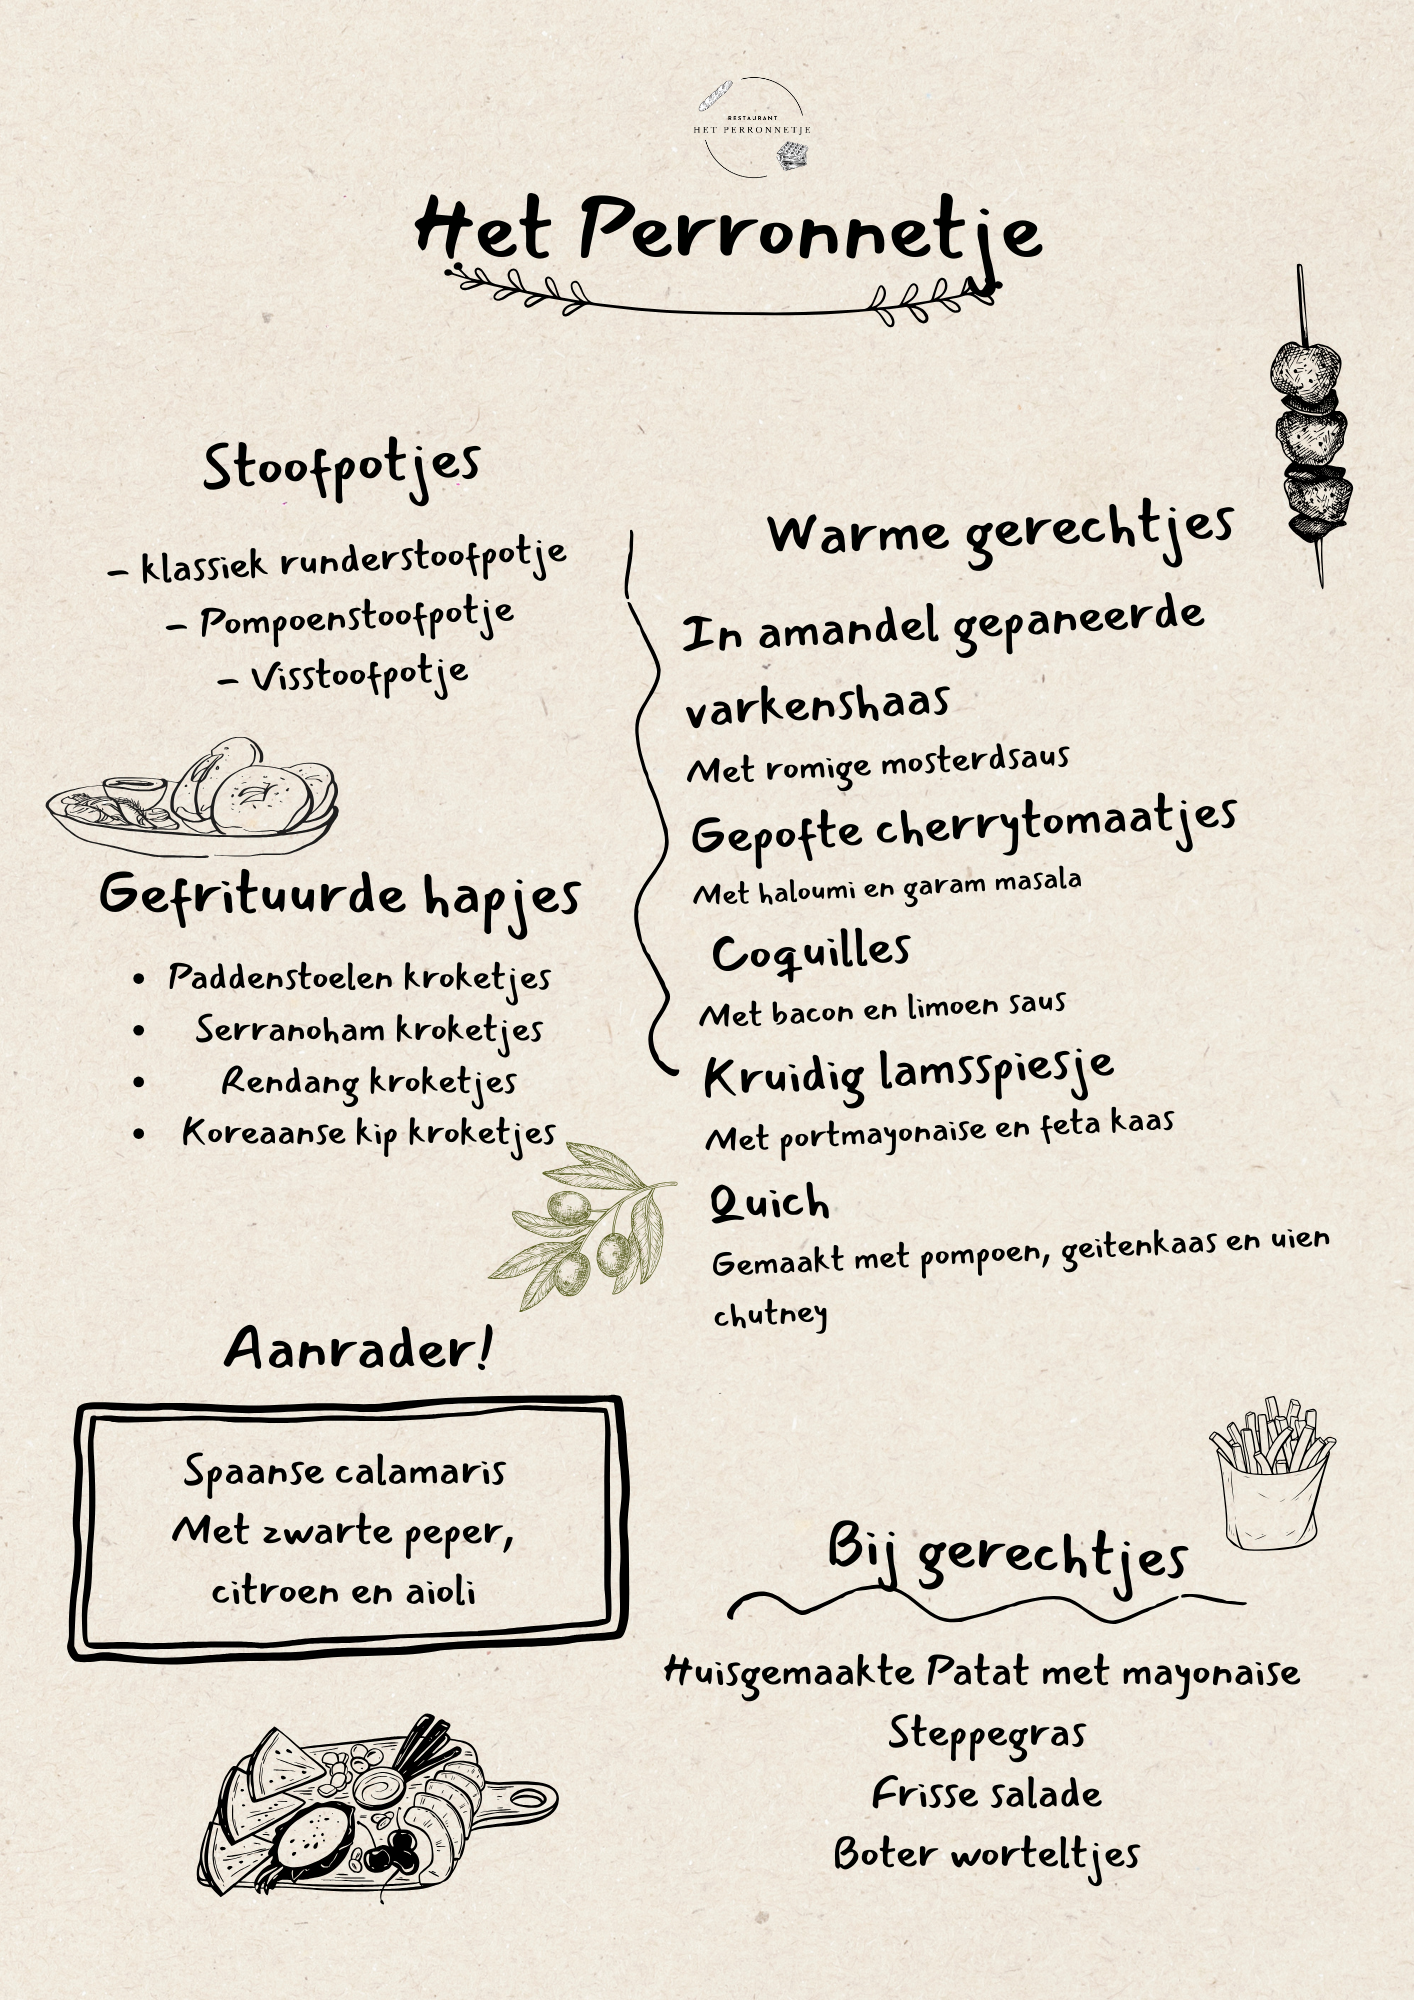 RESTAURANT
HET PERRONNETJE
Het Perronnetje
Stoofpotjes
- klassiek runderstoofpotje
- Pompoenstoofpotje
- Visstoofpotje
Gefrituurde hapjes
• Paddenstoelen kroketjes
• Serranoham kroketjes
• Rendang kroketjes
• Koreaanse kip kroketjes
Aanrader!
Spaanse calamaris
Met zwarte peper,
citroen en aioli
Warme gerechtjes
In amandel gepaneerde
varkenshaas
Met romige mosterdsaus
Gepofte cherrytomaatjes
Met haloumi en garam masala
Coquilles
Met bacon en limoen saus
Kruidig lamsspiesje
Met portmayonaise en feta kaas
Quich
Gemaakt met pompoen, geitenkaas en uien
chutney
Bij gerechtjes
Huisgemaakte Patat met mayonaise
Steppegras
Frisse salade
Boter worteltjes